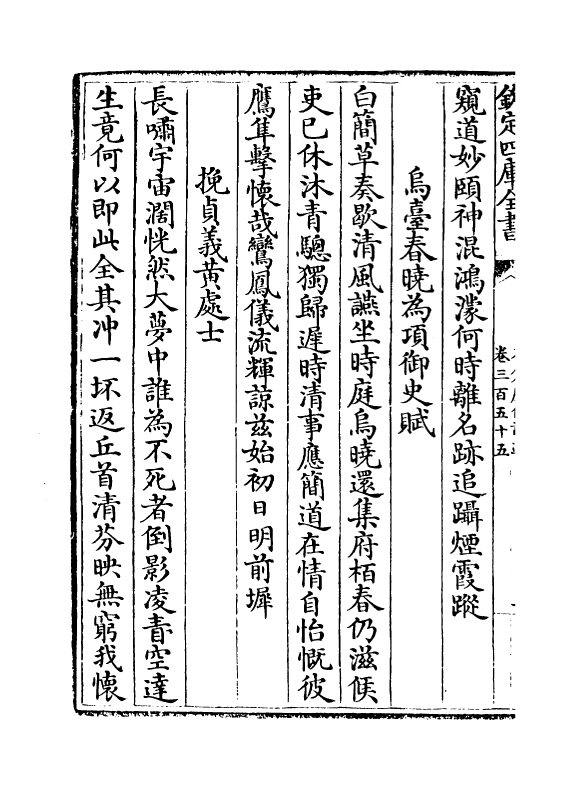 欽定四庫全書
卷三百五十五
窺道妙頤神混鴻濛何時離名跡追躡煙霞蹤
烏臺春曉為項御史賦
白簡草奏歇清風讌坐時庭烏曉還集府栢春仍滋候
吏已休沐青驄獨歸遲時清事應簡道在情自怡慨彼
鷹隼擊懷哉鸞鳳儀流輝諒兹始初日明前墀
挽貞義黃處士
長嘯宇宙濶恍然大夢中誰為不死者倒影凌青空達
生竟何以即此全其冲一坏返丘首清芬映無窮我懷